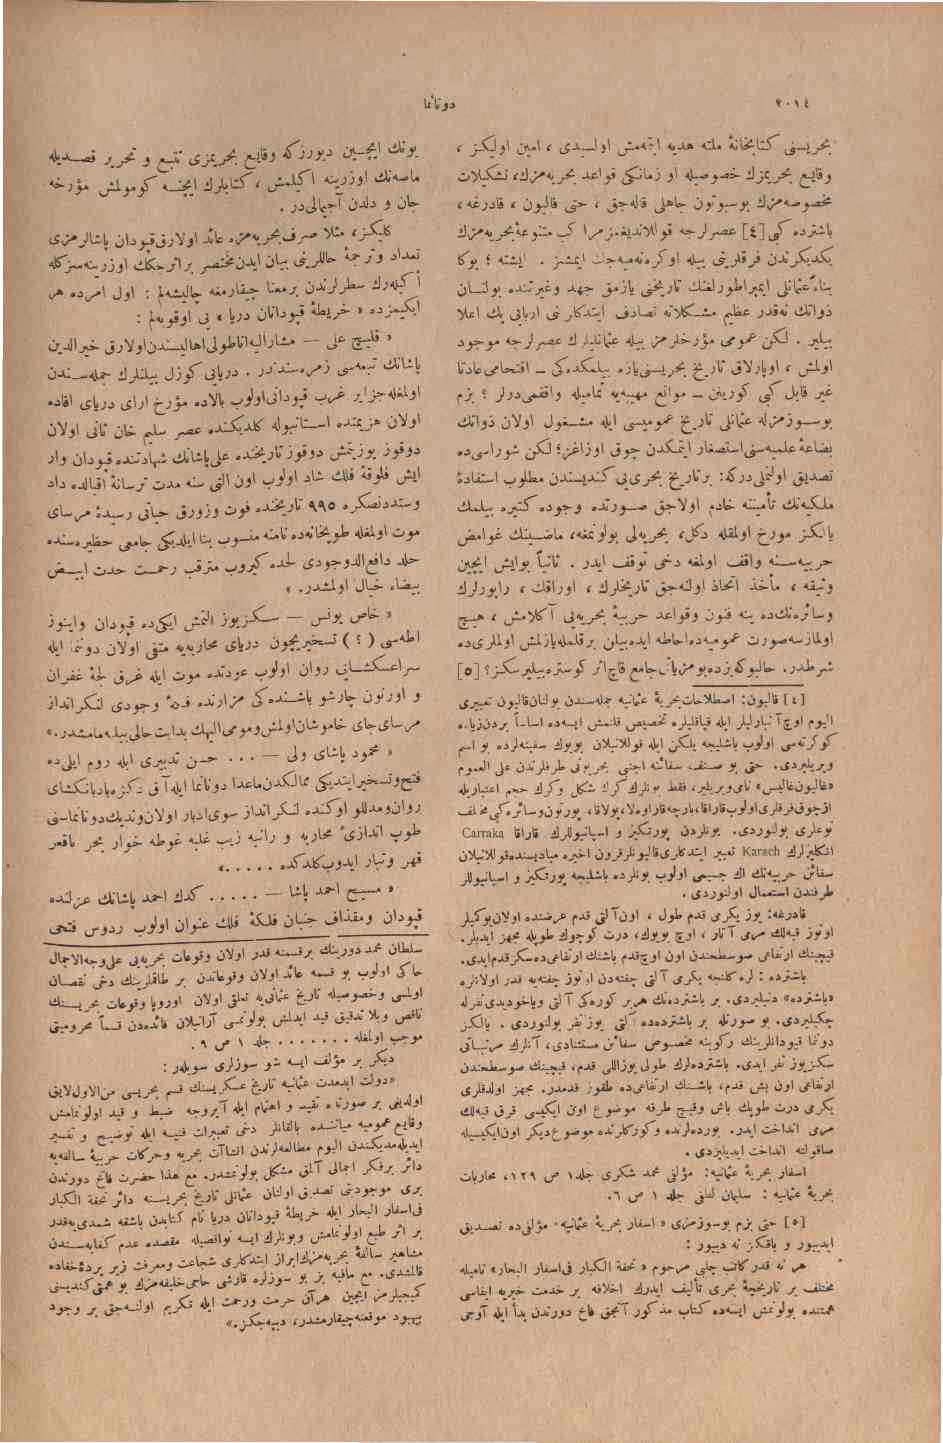 ٢٠١٤
دونانما
بحريسنى كتابخانۀ ملته هديه ايتمەمش اولسيدى ، امين اوليكز ،
وقايع بحريەمزك خصوصيله او زمانكى قواعد بحريەمزك، تشكيلات
مخصوصەمزك بوسبوتون جاهلى قالەجق ، حتى قاليون ، قادرغه ،
باشترده كبى [٤] عصرلرجه قوللانديغمز مراكب متنوعۀ بحريەمزك
يكديكرندن فرقلرينى بيله اوكرەنەميەجك ايمشز . ايشته ؛ بوكا
بناءً عثمانلى ايمپراطورلغنك تاريخنى يازمق جهد وغيرتنده بولنان
ذواتك نەقدر عظيم مشكلاته تصادف ايتدكلرنى اربابى پك اعلا
بيلير . لكن عمومى مؤرخلرمز بيله عثمانليلرك عصرلرجه موجود
اولمش ، اوپارلاق تاريخ بحريسنى يازه بيلمكدەكى ــ اقتحامى عادتا
غير قابل كبى كورينن ــ موانع مهيبەيه تماميله واقفميدرلر ؟ بزم
بوسوزمزله عثمانلى تاريخ عموميسى ايله مشغول اولان ذواتك
بضاعۀ علميەسنى استصغار ايتمكدن چوق اوزاغز؛ لكن شوراسى ده
تصديق اولنملى دركه: برتاريخ بحرى يى كنديسندن مطلوب استفادۀ
ملكيەنك تأمينته خادم اولاجق صورتده وجوده كتيره بيلمك
يالكز مورخ اولمقله دكل، بحريەلى بولونمغه، ماضينك غوامض
حربيەسنه واقف اولمغه دخى توقف ايدر . ثانياً بوايش ايچين
وثيقه ، مأخذ اتخاذ اولنەجق تاريخلرك ، اوراقك ، راپورلرك
وسائرەنك ده ينه فنون وقواعد حربيۀ بحريەيى آكلامش ، هيچ
اولمازسه صورت عموميەده احاطه ايده بيلن برقلمله يازلمش اولملرى ده
شرطدر. حالبوكه بزده بومزياتى جامع قاچ اثر كوستره بيليرسكز؟ [٥]
[٤] قاليون: اصطلاحات بحريۀ عثمانيه جملەسندن بولنان قاليون تعبيرى
اليوم اوچ آنبارليلر ايله قپاقليلره تخصيص قلنمش ايسەده اساساً بردن زياده
كوكرتەسى اولوب باشليجه يلكن ايله قوللانيلان بويوك سفينەلرده بو اسم
ويريليردى. حتى بو صنف سفائنه اجنبى بحريونى طرفلرندن على العموم
«غاليون غاليس» نامى ويريلير، فقط بونلرك كرك شكل وكرك حجم اعتباريله
ازچوق فرقلرى اولوب قاراقا، بارچه قاراوەلا، بولاقا، پورتون وسائره كبى مختلف
نوعلرى بولنوردى. بونلردن پورتكيز و اسپانيوللرك قاراقا Carraka
انكليزلرك Karach تعبير ايتدكلرى قاليونلر قرون اخيره مباديسنده قوللانيلان
سفائن حربيەنك اك جسيمى اولوب بونلرده باشليجه پورتكيز و اسپانيوللر
طرفندن استعمال اولنوردى .
قادرغه: يوز يكرمى قدم طول ، اون آلتى قدم عرضنده اولان بوكميلر
اوتوز قيەلك مرمى آتار ، اوچ بويوك، درت كوچوك طوپله مجهز ايديلر.
قيچينك ارتفاعى صوسطحندن اون اوچ قدم باشنك ارتفاعى ده سكز قدم ايدى.
باشترده : لره كلنجه يكرمى آلتى چفتەدن اوتوز چفتەيه قدر اولانلره
«باشترده» دنيليردى. بر باشتردەنك هربر كورەكى آلتى وياخود يدى نفرله
چكيليردى. بو صورتله بر باشتردەده آلتى يوز نفر بولنوردى . يالكز
دونما قپودانلرينك ركوبنه مخصوص سفائن مستثنادى، آنلرك مرتباتى
سكز يوز نفر ايدى. باشتردەلرك طولى يوزاللى قدم، قيچينك صوسطحندن
ارتفاعى اون بش قدم، باشنك ارتفاعى ده طقوز قدمدر. مجهز اولدقلرى
يكرمى درت طوپك باش وقيچ طرفه موضوع اون ايكيسى قرق قيەلك
مرمى انداخت ايدر. بوردەلرنده وكوزكلرنده موضوع ديكر اون ايكيسيله
صاقولته انداخت ايديليردى .
اسفار بحريۀ عثمانيه: مؤلفى محمد شكرى جلد١ ص ١٢٩، محاربات
بحريۀ عثمانيه : سليمان نطقى جلد ١ ص ٦.
[٥] حتى بزم بوسوزمزى « اسفار بحريۀ عثمانيه» مؤلفى ده تصديق
ايدييور و باقكز نه دييور :
هر نه قدر كاتب چلبى مرحوم « تحفة الكبار فى اسفار البحار» ناميله
مختلف بر تاريخچۀ بحرى تأليف ايدرك اخلافه بر خدمت خيريه ايفاسى
همتنده بولونمش ايسەده كتاب مذكور آنجق فاتح دورندن بدأ ايله آوجى
بونك ايچين ديورزكه وقايع بحريەمزى تتبع و تحرير قصديله
ماصەنك اوزرينه اكيلمش ، كتابلرك ايچنه كومولمش مؤرخه
جان و دلدن آجيمالى در .
كليكز ، مثلا صرف بحريەمزه عائد اولارق قپودان پاشالرمزى
تعداد وترجمۀ حاللرينى بيان ايدن مختصر براثرجكك اوزرينه سزكله
اكيلەرك سطرلرندن برمعنا چيقارمغه چاليشەلم : اول امرده هر
ايكيمزده « خريطۀ قپودانان دريا » يى اوقويەلم :
« قليچ على ــ مشاراليه اناطولى اهاليسندن اولارق خيرالدين
پاشانك تبعەسى زمرەسندندر . دريايى كوزل بيلنلرك جملەسندن
اولمغله جزاير غرب قپودانى اولوب بالاده مؤرخ اراى درياى افاده
اولان هزيمتده استانبوله كلديكنده عصر سليم خان ثانى اولان
دوقوز يوز يتمش دوقوز تاريخنده على پاشانك شهادتنده قپودان وار
ايش فلوقۀ فلك شاد اولوب اون التى سنه مدت ترسانۀ اقبالده داد
وستددنصكره ٩٩٥ تاريخنده فوت وزورق حياتى رسيدۀ مرساى
موت اولمغله طوپخانەده نامنه منسوب بنا ايلديكى جامعى حظيرەسنده
خلد دافع الدوجودى لحده كيروب مترقب رحمت حدت ابيض
بيضاء خيال اولمشدر. »
« خاص يونس ــ سكزيوز التمش ايكى ده قپودان واينوز
اطەسى ( ؟ ) تسخيريچون درياى محاربەيه متقى اولان دونما ايله
سراعسكشانى روان اولوب عودتده موت ايله غرق لجۀ غفران
و اورنون چارشو باشنده كى مزارنده وجودى لنكرانداز
مرساى جاى خاموشان اولمش ومومى اليهك بدايت حالى بيلەمامشدر.»
« محمود پاشاى ولى ــ ... حسن تدبيرى ايله روم ايلى ده
فتح وتسخير ايتديكى ممالكدن ماعدا دونانما ايله آق دكزه بادبانكشاى
روان ومدللو اوكنده لنكرانداز سوى ادبار اولان ونديك دونانماسنى
طوپ اندازىٔ محاربه و رانيه زيب غلبه غوطه خوار بحر باقعر
قهر وتبار ايدوب كلدكده .....»
« مسيح احمد پاشا ــ ..... كدك احمد پاشانك عزلنده
قپودان ومقذاف جنبان فلكۀ فلك عنوان اولوب ردوس فتحى
سلطان محمد دورينك برقسمنه قدر اولان وقوعات بحريەيى على وجه الاجمال
حاكى اولوب بو قسمه عائد اولان وقوعاتدن بر طاقملرينك دخى نقصان
اولسى وخصوصيله تاريخ عثمانى يه تعلقى اولان اوروپا وقوعات بحريسنك
ناقص وبلا تدقيق قيد ايدلمش بولونمسى آرانيلان فائدەدن قسماً محروميتى
موجب اولمغله ....... جلد ١ ص ٩ .
ديكر بر مؤلف ايسه شو سوزلرى سويلەر :
«دولت ايدمدت عثمانيه تاريخ عسكريسنك قسم بحريسى من الاول لايق
اولديغى بر صورتده تقيد و اهتمام ايله آيروجه ضبط و قيد اولونمامش
وقايع عموميه مياننده يالقانلر دخى تعبيرات فنيه ايله توضيح و تفسير
ايديلەمديكندن اليوم مطالعەلرندن انشاآت بحريه وحركات حربيۀ سالفەيه
دائر برفكر اجمالى آلنمق مشكل بولونمشدر. مع هذا حضرت فاتح دورندن
برى موجودتى تصديق اولنان عثمانلى تاريخ بحريسنه دائر تحفة الكبار
فى اسفار البحار ايله خريطۀ قپودانان دريا نام كتابدن باشقه شمدى يەقدر
بر اثر طبع اولونمامش وبونلرك ايسه نواقصيله مقصده عدم كفايەسندن
مشاهير سالفۀ بحريەمزك ابراز ايتدكلرى شجاعت ومعرفت زير پردۀ خفاده
قالمشدى. مع مافيه بز بو سوزلره قارشى حاجى خليفەمزك بو همتى كنديسنى
كميجيلرمز ايچين هرآن حرمت ورحمت ايله تكريم اولنەجق بر وجود
بهبود موقعنه چيقارمشدر، دييەجكز.»